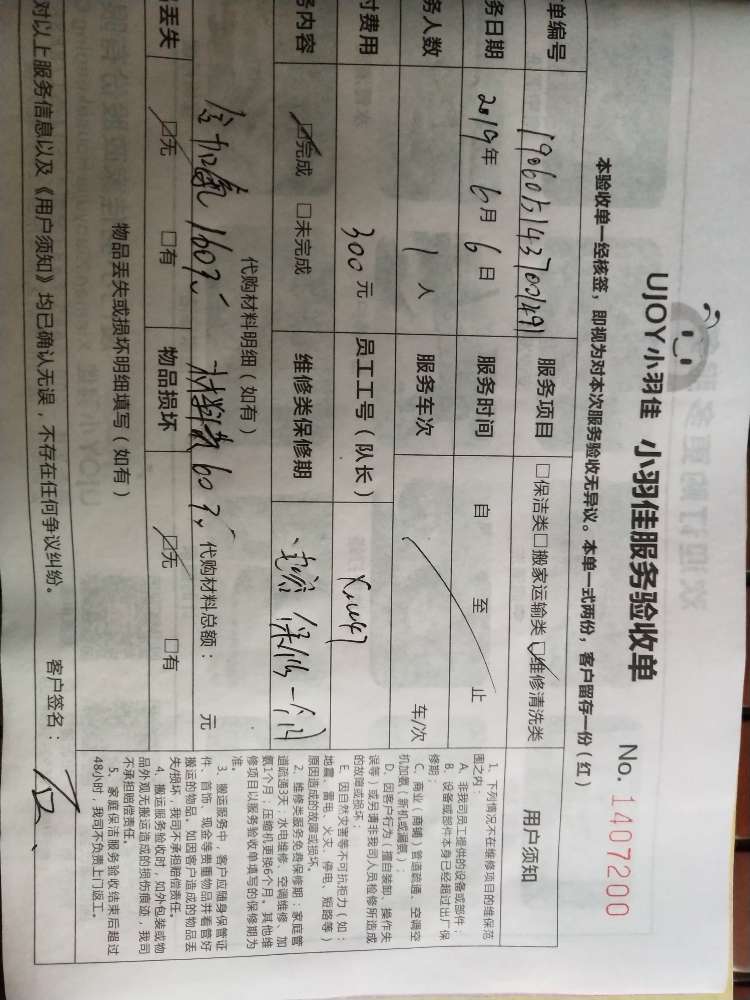 UJOY小羽佳 小羽佳服务验收单
No. 1407200
本验收单一经核签，即视为对本次服务验收无异议。本单一式两份，客户留存一份（红）
单编号 190605143700491 服务项目 □保洁类□搬家运输类☑维修清洗类
务日期 2019年6月6日 服务时间 自 至 止
务人数 1人 服务车次 车/次
付费用 300元 员工工号（队长）
务内容 ☑完成 □未完成 维修类保修期 保修一个月
代购材料明细（如有）
含加氟160元 材料费60元 代购材料总额： 元
丢失 ☑无 □有 物品损坏 ☑无 □有
物品丢失或损坏明细填写（如有）
对以上服务信息以及《用户须知》均已确认无误，不存在任何争议纠纷。 客户签名：
用户须知
1、下列情况不在维修项目的维保范
围之内：
A、非我司员工提供的设备或部件；
B、设备或部件本身已经超过出厂保
修期；
C、商业（商铺）管道疏通、空调空
机加氨（新机或漏氨）；
D、因客户行为（擅自装卸、操作失
误等）或另请非我司人员检修所造成
的故障或损坏；
E、因自然灾害等不可抗拒力（如：
地震、雷电、火灾、停电、短路等）
原因造成的故障或损坏。
2、维修类服务免费保修期：家庭管
道疏通3天；水电维修、空调维修、加
氨1个月；压缩机更换6个月。其他维
修项目以服务验收单填写的保修期为
准。
3、搬运服务中，客户应随身保管证
件、首饰、现金等贵重物品并看管好
搬运的物品，如因客户造成的物品丢
失/损坏，我司不承担赔偿责任。
4、搬运服务验收时，如外包装或物
品外观无搬运造成的损伤痕迹，我司
不承担赔偿责任。
5、家庭保洁服务验收结束后超过
48小时，我司不负责上门返工。